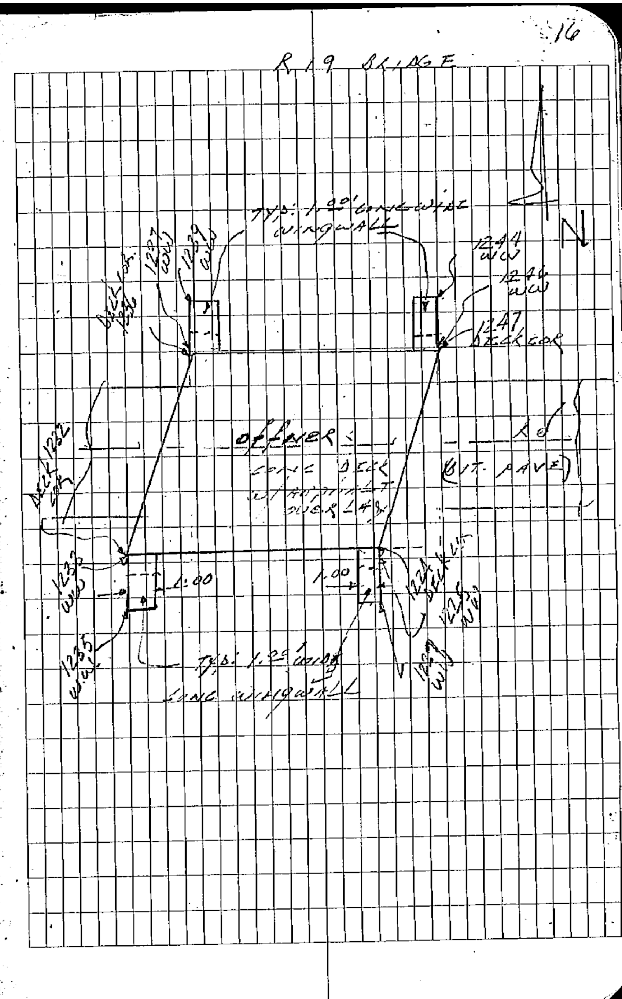 16
R19 BRIDGE
N
TYP. 1.00' CONC WIDE
WINGWALL
1237
WW
1239
WW
DECK COR.
1236
1244
WW
1246
WW
1247
DECK COR
DECK 1232
COR
OFFNER
RD
CONC DECK
W/ ASPHALT
OVERLAY
(BIT. PAVE)
1233
WW
1.00
1.00
DECK COR
1225
WW
WW
1235
W.W.
TYP. 1.00' WIDE
CONC WINGWALL